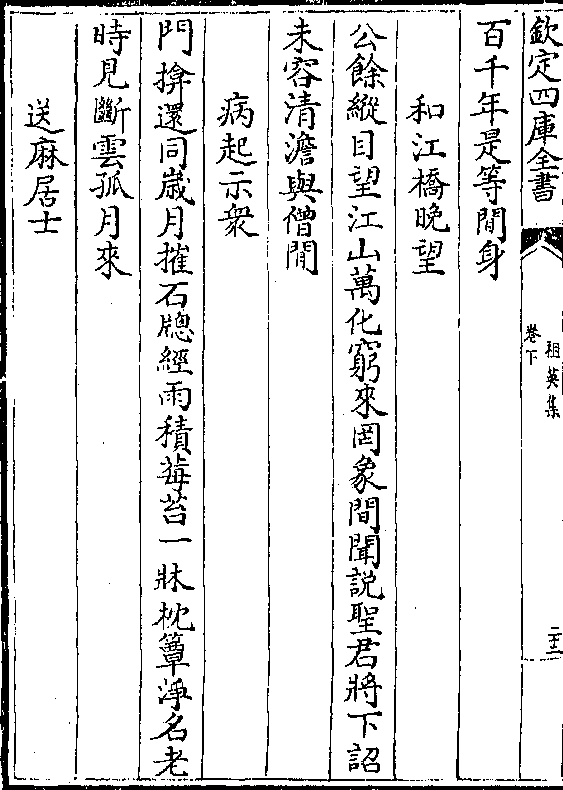 欽定四庫全書
祖英集
卷下
二十二
百千年是等閒身
和江橋晚望
公餘縱目望江山萬化窮來罔象間聞說聖君將下詔
未容清澹與僧閒
病起示衆
門揜還同歲月摧石牕經雨積莓苔一牀枕簟淨名老
時見斷雲孤月來
送麻居士